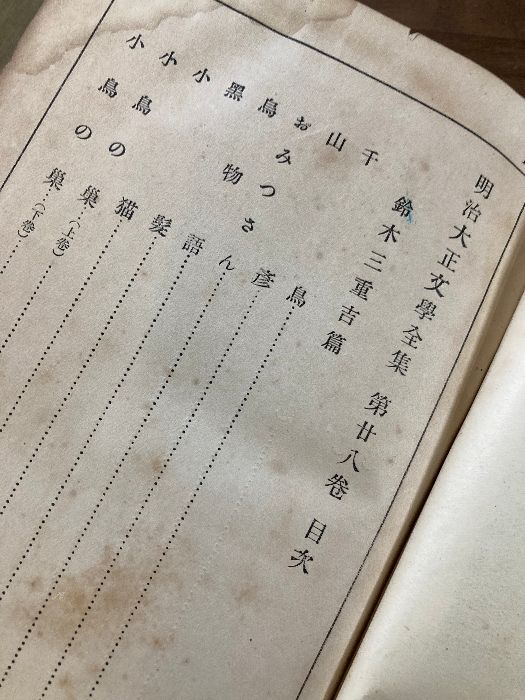 明治大正文學全集 第廿八卷 目次
鈴木三重吉篇
千鳥
山彥
おみつさん
烏物語
黑髮
小猫
小鳥の巢(上卷)
小鳥の巢(下卷)